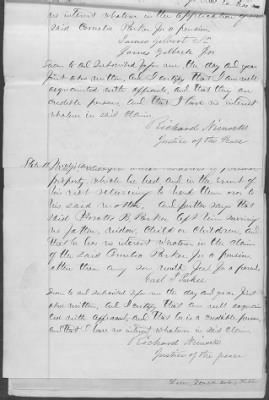 no interest whatever in the application of
said Cornelia Parker for a pension
James Gilbert Sr
James Gilbert Jr
Sworn to and Subscribed before me the day and year
first above written, and I certify that I am well
acquainted with affiants, and that they are
credible persons, and that I have no interest
whatever in said Claim.
Richard Nimocks
Justice of the Peace
property, which he had and in the event of
his not returning to hand them over to
his said mother, and further says that
said B. Parker left him surviving
no father, widow, child or children, and
that he has no interest whatever in the claim
of the said Cornelia Parker for a pension
other than any son would feel for a parent.
Parker
Sworn to and subscribed before me the day and year first
above written, and I certify that I am well acquain
ted with affiant, and that he is a credible person,
and that I have no interest whatever in said Claim.
Richard Nimocks
Justice of the peace